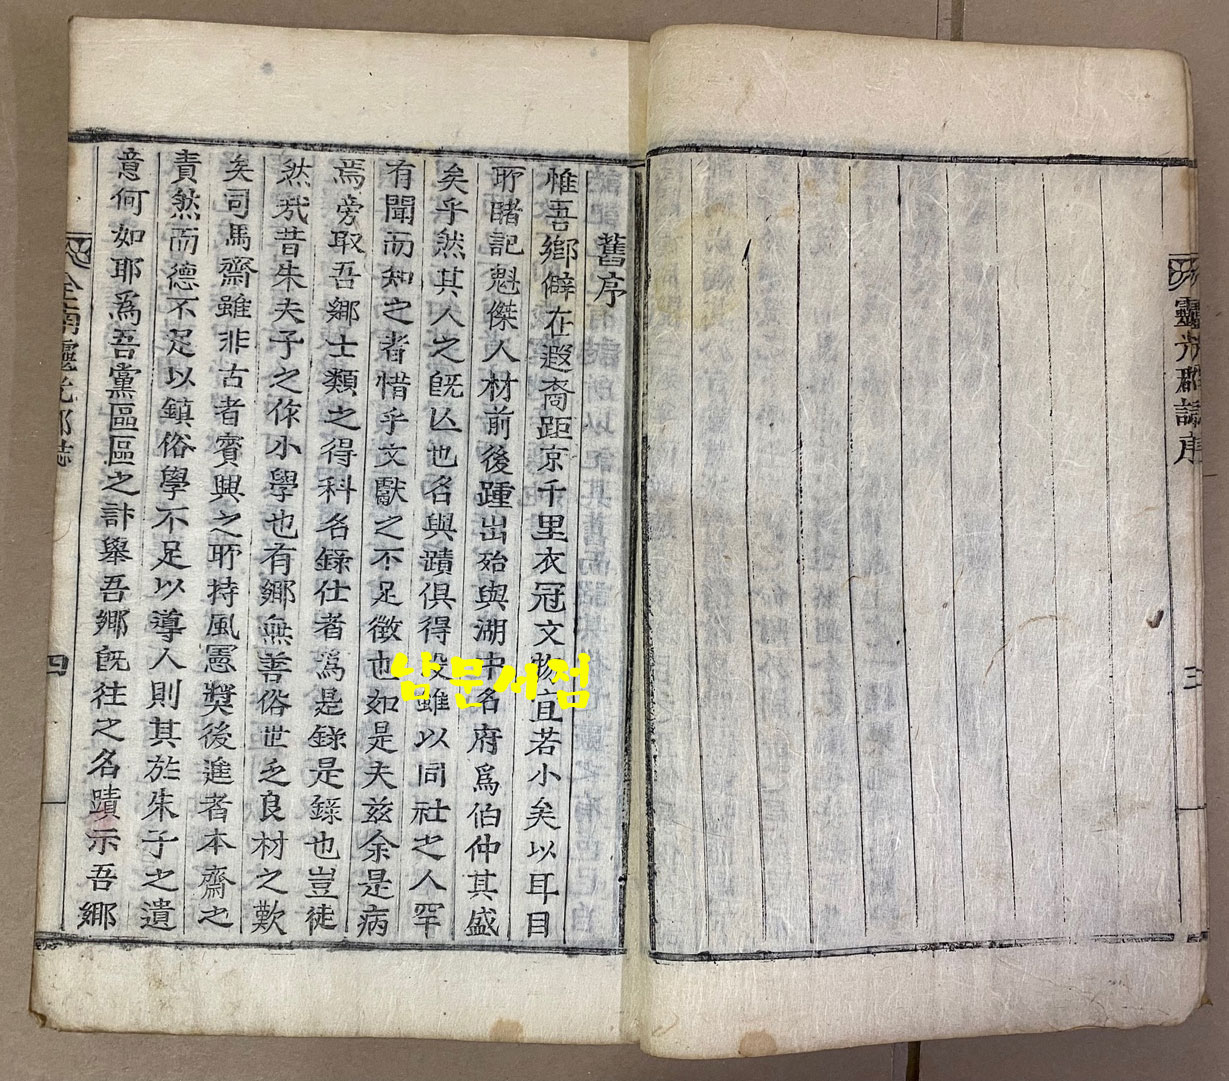 靈光郡誌序
三
舊序
惟吾鄉僻在遐裔距京千里衣冠文物宜若小矣以耳目
所睹記魁傑人材前後踵出殆與湖中名府爲伯仲其盛
矣乎然其人之旣亾也名與蹟俱得沒雖以同社之人罕
有聞而知之者惜乎文獻之不足徵也如是夫玆余是病
焉旁取吾鄉士類之得科名錄仕者爲是錄是錄也豈徒
然哉昔朱夫子之作小學也有鄉無善俗世乏良材之歎
矣司馬齋雖非古者賓興之所持風憲奬後進者本齋之
責然而德不足以鎮俗學不足以導人則其於朱子之遺
意何如耶爲吾黨區區之計擧吾鄉旣往之名蹟示吾鄉
全南靈光郡誌
四
남문서점